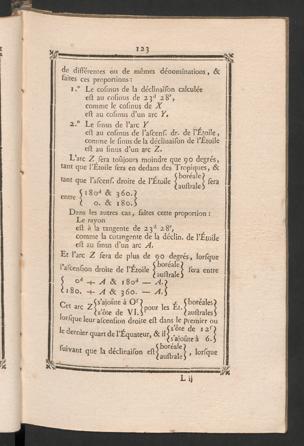 123
de différentes ou de mêmes dénominations, &
faites ces proportions:
1.° Le cosinus de la déclinaison calculée
est au cosinus de 23ᵈ 28′,
comme le cosinus de X
est au cosinus d'un arc Y.
2.° Le sinus de l'arc Y
est au cosinus de l'ascens. dr. de l'Étoile,
comme le sinus de la déclinaison de l'Étoile
est au sinus d'un arc Z.
L'arc Z sera toûjours moindre que 90 degrés,
tant que l'Étoile sera en dedans des Tropiques, &
tant que l'ascens. droite de l'Étoile {boréale / australe} sera
entre {180ᵈ & 360.} / {0. & 180.}
Dans les autres cas, faites cette proportion:
Le rayon
est à la tangente de 23ᵈ 28′,
comme la cotangente de la déclin. de l'Étoile
est au sinus d'un arc A.
Et l'arc Z sera de plus de 90 degrés, lorsque
l'ascension droite de l'Étoile {boréale / australe} sera entre
{0ᵈ + A & 180ᵈ — A.}
{180. + A & 360. — A.}
Cet arc Z {s'ajoûte à Oˢ / s'ôte de VI.} pour les Ét. {boréales / australes}
lorsque leur ascension droite est dans le premier ou
le dernier quart de l'Équateur, & il {s'ôte de 12ˢ / s'ajoûte à 6.}
suivant que la déclinaison est {boréale / australe}, lorsque
L ij